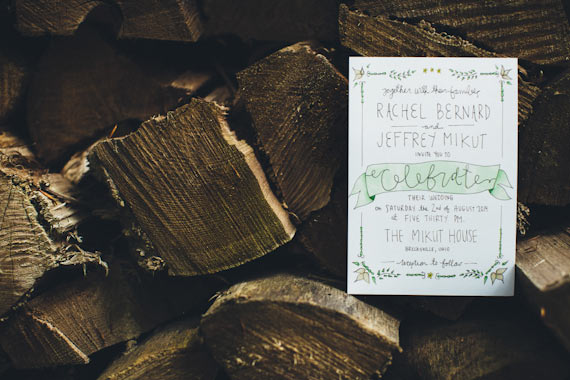 together with their families
RACHEL BERNARD
and
JEFFREY MIKUT
INVITE YOU TO
celebrate
THEIR WEDDING
on SATURDAY the 2nd of AUGUST 2014
at FIVE THIRTY PM.
THE MIKUT HOUSE
BRECKSVILLE, OHIO
reception to follow